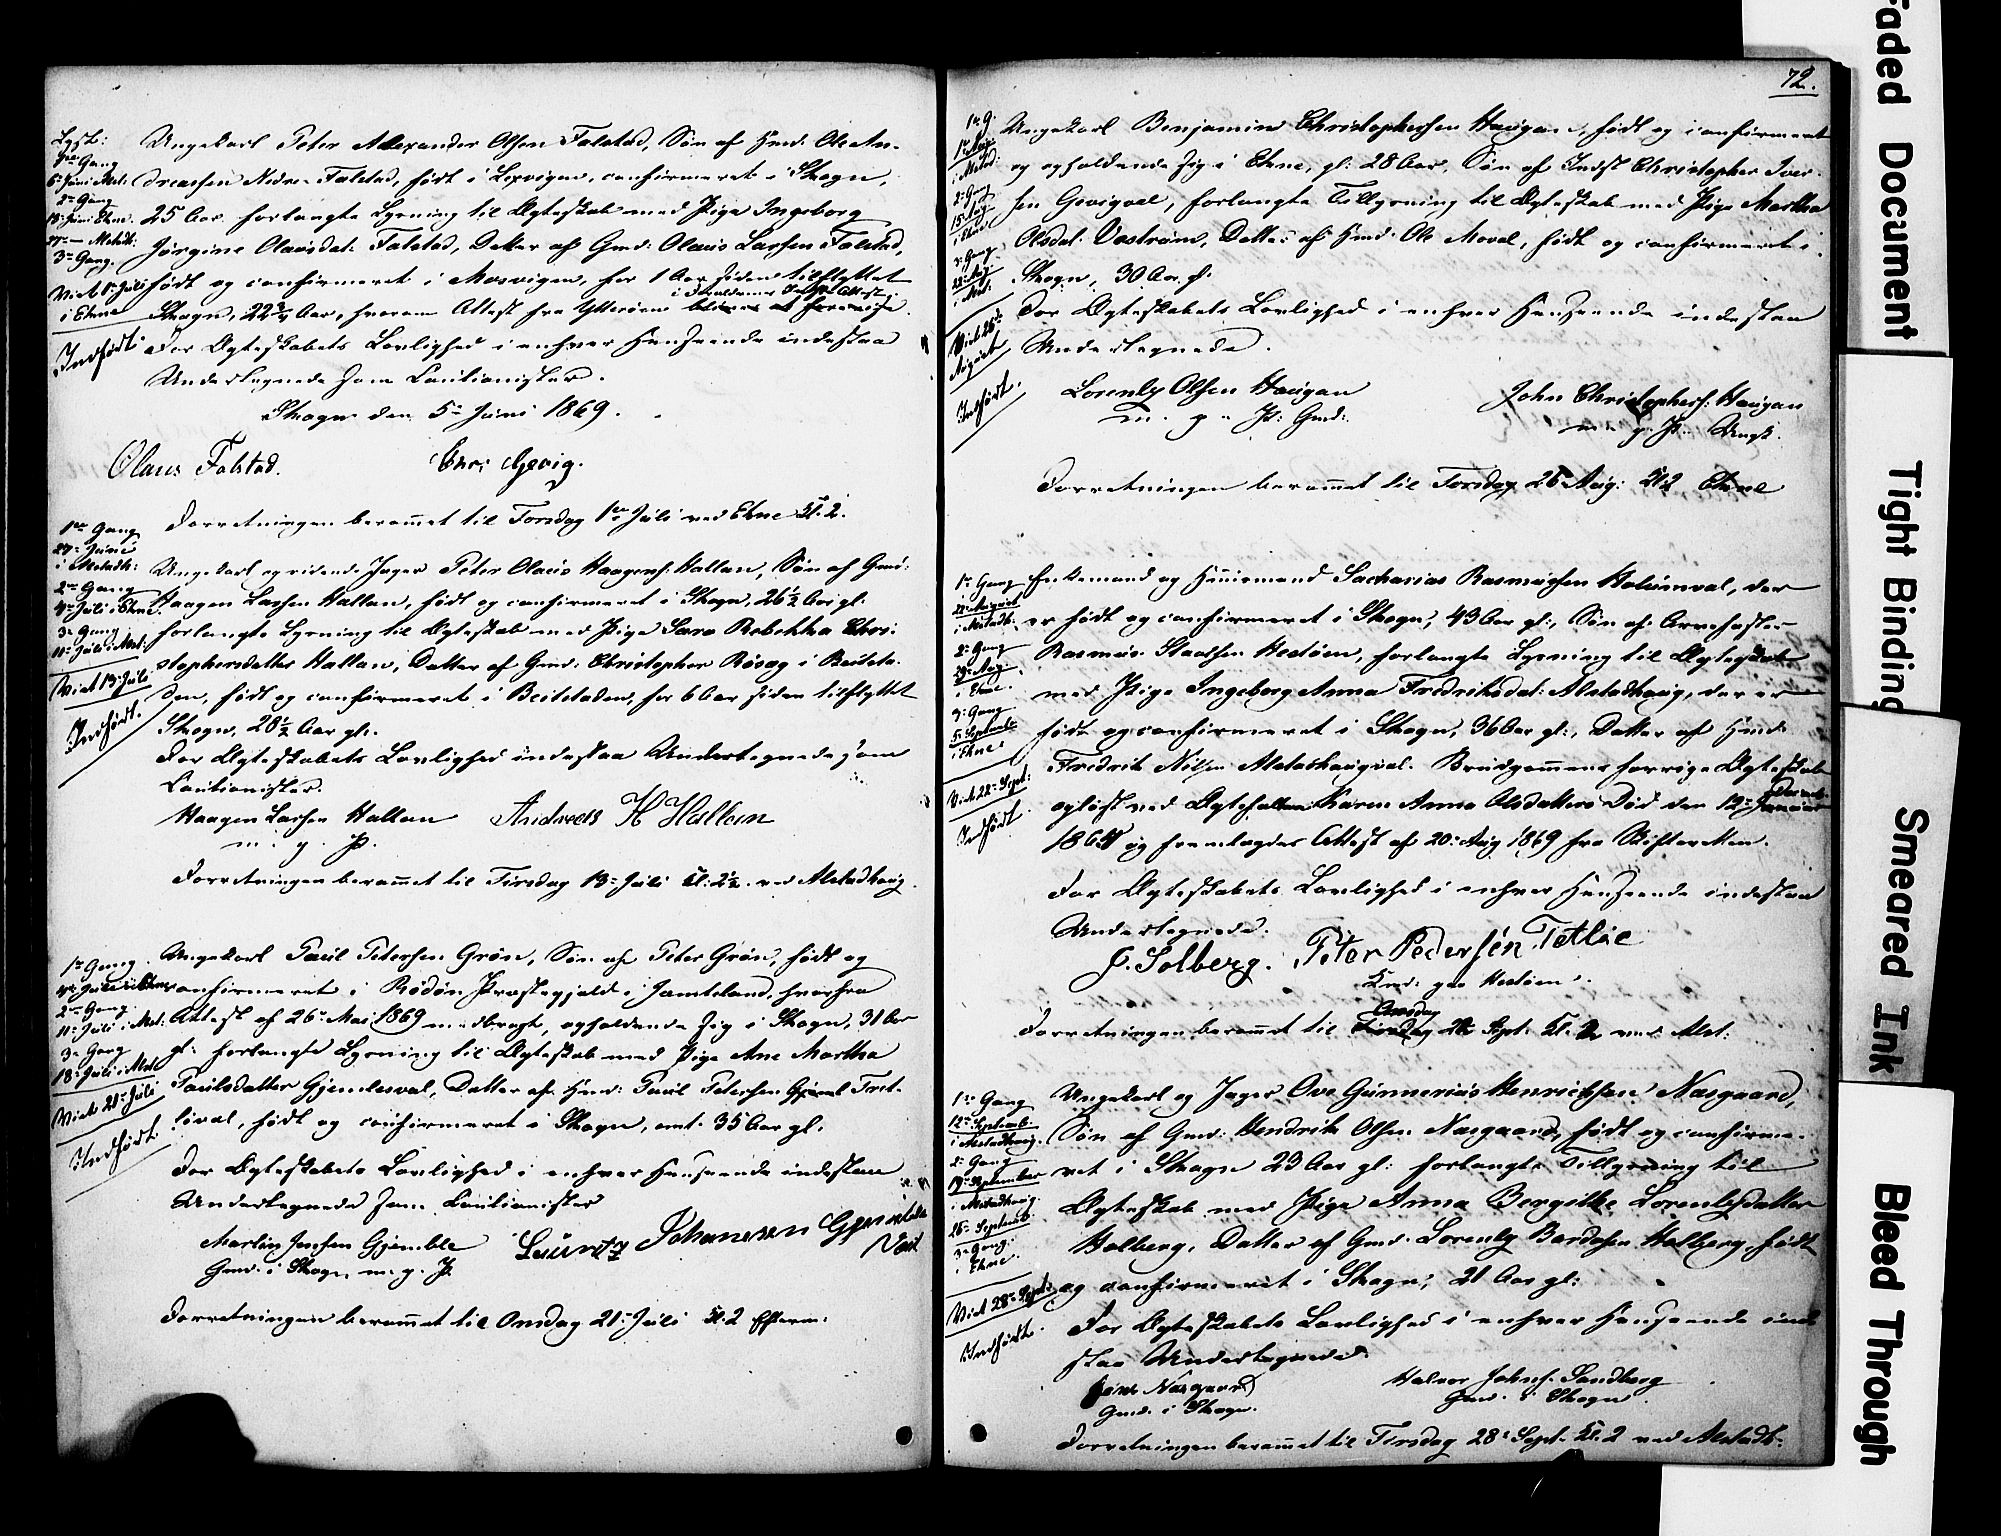 Lyst:
1ste Gang
6te Juni Alst:
2den Gang
13. Juni Ekne
27. — Alstdt:
3die Gang.
Viet 1ste Juli
i Ekne
Indført
Ungekarl Peter Alexander Olsen Falstad, Søn af Hmd. Ole An-
dreassen Nedre Falstad, født i Lexvigen, confirmeret i Skogn,
25 Aar. forlangte Lysning til Ægteskab med Pige Ingeborg
Jørgine Olausdat: Falstad, Datter af Gmd: Olaus Larsen Falstad,
født og confirmeret i Mosvigen, for 1 Aar siden tilflyttet
Skogn, 22 3/4 Aar, hvorom Attest fra Ytterøen
For Ægteskabets Lovlighed i enhver Henseende indestaa
Undertegnede som Cautionister.
Skogn den 5te Juni 1869.
Olaus Falstad.
Forretningen berammet til Torsdag 1ste Juli ved Ekne Kl. 2.
1ste Gang
27. Juni
i Alstadh:
2den Gang
4de Juli i Ekne.
3die Gang
11te Juli i Alst:
Viet 13. Juli
Indført.
Ungekarl og ridende Jæger Peter Olaus Haagens. Hallan, Søn af Gmd:
Haagen Larsen Hallan, født og confirmeret i Skogn, 26 1/2 Aar gl.
forlangte Lysning til Ægteskab med Pige Sara Rebekka Chri-
stophersdatter Hallan, Datter af Gmd: Christopher Røsæg i Beitsta-
den, født og confirmeret i Beitstaden, for 6 Aar siden tilflyttet
Skogn, 28 1/2 Aar gl.
For Ægteskabets Lovlighed indestaa Undertegnede som
Cautionister.
Haagen Larsen Hallan Andreas H Hallan
m. p. P.
Forretningen berammet til Tirsdag 13de Juli Kl: 2 1/2 ved Alstadhaug.
1ste Gang
4de Juli i Ekne
2den Gang
11te Juli i Alst:
3die Gang
18de Juli i Alst
Viet 21de Juli
Indført
Ungekarl Paul Petersen Grøn, Søn af Peter Grøn, født og
confirmeret i Rødøn Præstegjeld i Jæmteland, hvorfra
Attest af 26de Mai 1869 medbragt, opholdende sig i Skogn, 31 Aar
gl: forlangte Lysning til Ægteskab med Pige Ane Martha
Paulsdatter Gjemlesval, Datter af Hmd: Paul Petersen Tret-
lival, født og confirmeret i Skogn, omt. 35 Aar gl.
For Ægteskabets Lovlighed i enhver Henseende indestaa
Undertegnede som Cautionister
Martin Jensen Gjemble Lauritz Johannesen Gjemble
Gmd. i Skogn m. p. P.
Forretningen berammet til Onsdag 21de Juli Kl. 2 Efterm.
72.
1ste G.
i Alstd:
2. Gang
15. Aug
i Ekne
3. Gang
22. Aug
i Alst:
Viet 26de
August
Indført.
Ungekarl Benjamin Christophersen Haugan, født og confirmeret
og opholdende sig i Ekne, gl: 28 Aar, Søn af Indst Christopher Iver-
sen Gevigval, forlangte Tillysning til Ægteskab med Pige Martha
Olsdat. Vestrum, Datter af Hmd. Ole Moval, født og confirmeret i
Skogn, 30 Aar gl.
For Ægteskabets Lovlighed i enhver Henseende indestaa
Undertegnede.
Lorents Olsen Haugan John Christophers: Haugan
m. p. P: Gmd: m. p. P. Ungk.
Forretningen berammet til Torsdag 26 Aug: Kl 2 Ekne
1ste Gang
22. August
i Alstadh:
2. Gang
29. Aug
i Ekne.
3. Gang
5. Septemb
i Ekne.
Viet 22de Sept:
Indført.
Enkemand og Huusmand Sacharias Rasmussen Holumval, der
er født og confirmeret i Skogn, 43 Aar gl., Søn af Arrehæfter
Rasmus Hestøen, forlangte Lysning til Ægteskab
med Pige Ingeborg Anna Fredriksdat: Alstadhaug, der er
født og confirmeret i Skogn, 36 Aar gl:, Datter af Hmd.
Fredrik Nilsen Alstadhaugval. Brudgommens forrige Ægteskab
opløst ved Ægtefællen Karen Anna Olsdatters Død den 12te
og fremlagdes Attest af 20de Aug 1869 fra Skifteretten.
For Ægteskabets Lovlighed i enhver Henseende indestaa
Undertegnede.
J. Solberg. Peter Pedersen Tetlie
Kmd: paa Hestøen.
Onsdag
Forretningen berammet til Sept: Kl. 2 ved Alst:
1ste Gang
12te Septemb.
i Alstadhaug.
2. Gang
19. September
i Alstadhaug.
26de Septemb.
3. Gang.
i Ekne.
Viet 28de Sept.
Indført.
Ungekarl og Jæger Ove Gunnerius Henrichsen Næsgaard,
Søn af Gmd: Hendrik Olsen Næsgaard, født og confirme-
ret i Skogn 23 Aar gl: forlangte Tillysning til
Ægteskab med Pige Anna Bergitte Lorentsdatter
Holberg, Datter af Gmd. Lorents Bardosen Holberg, født
og confirmeret i Skogn, 21 Aar gl:
For Ægteskabets Lovlighed i enhver Henseende inde
staa Undertegnede.
Næsgaard Halvor Johns. Sandberg
Gmd. i Skogn. Gmd. i Skogn.
Forretningen berammet til Tirsdag 28de Sept. Kl. 2 ved Alstadh.
Faded Document
Tight Binding
Smeared Ink
Bleed Through